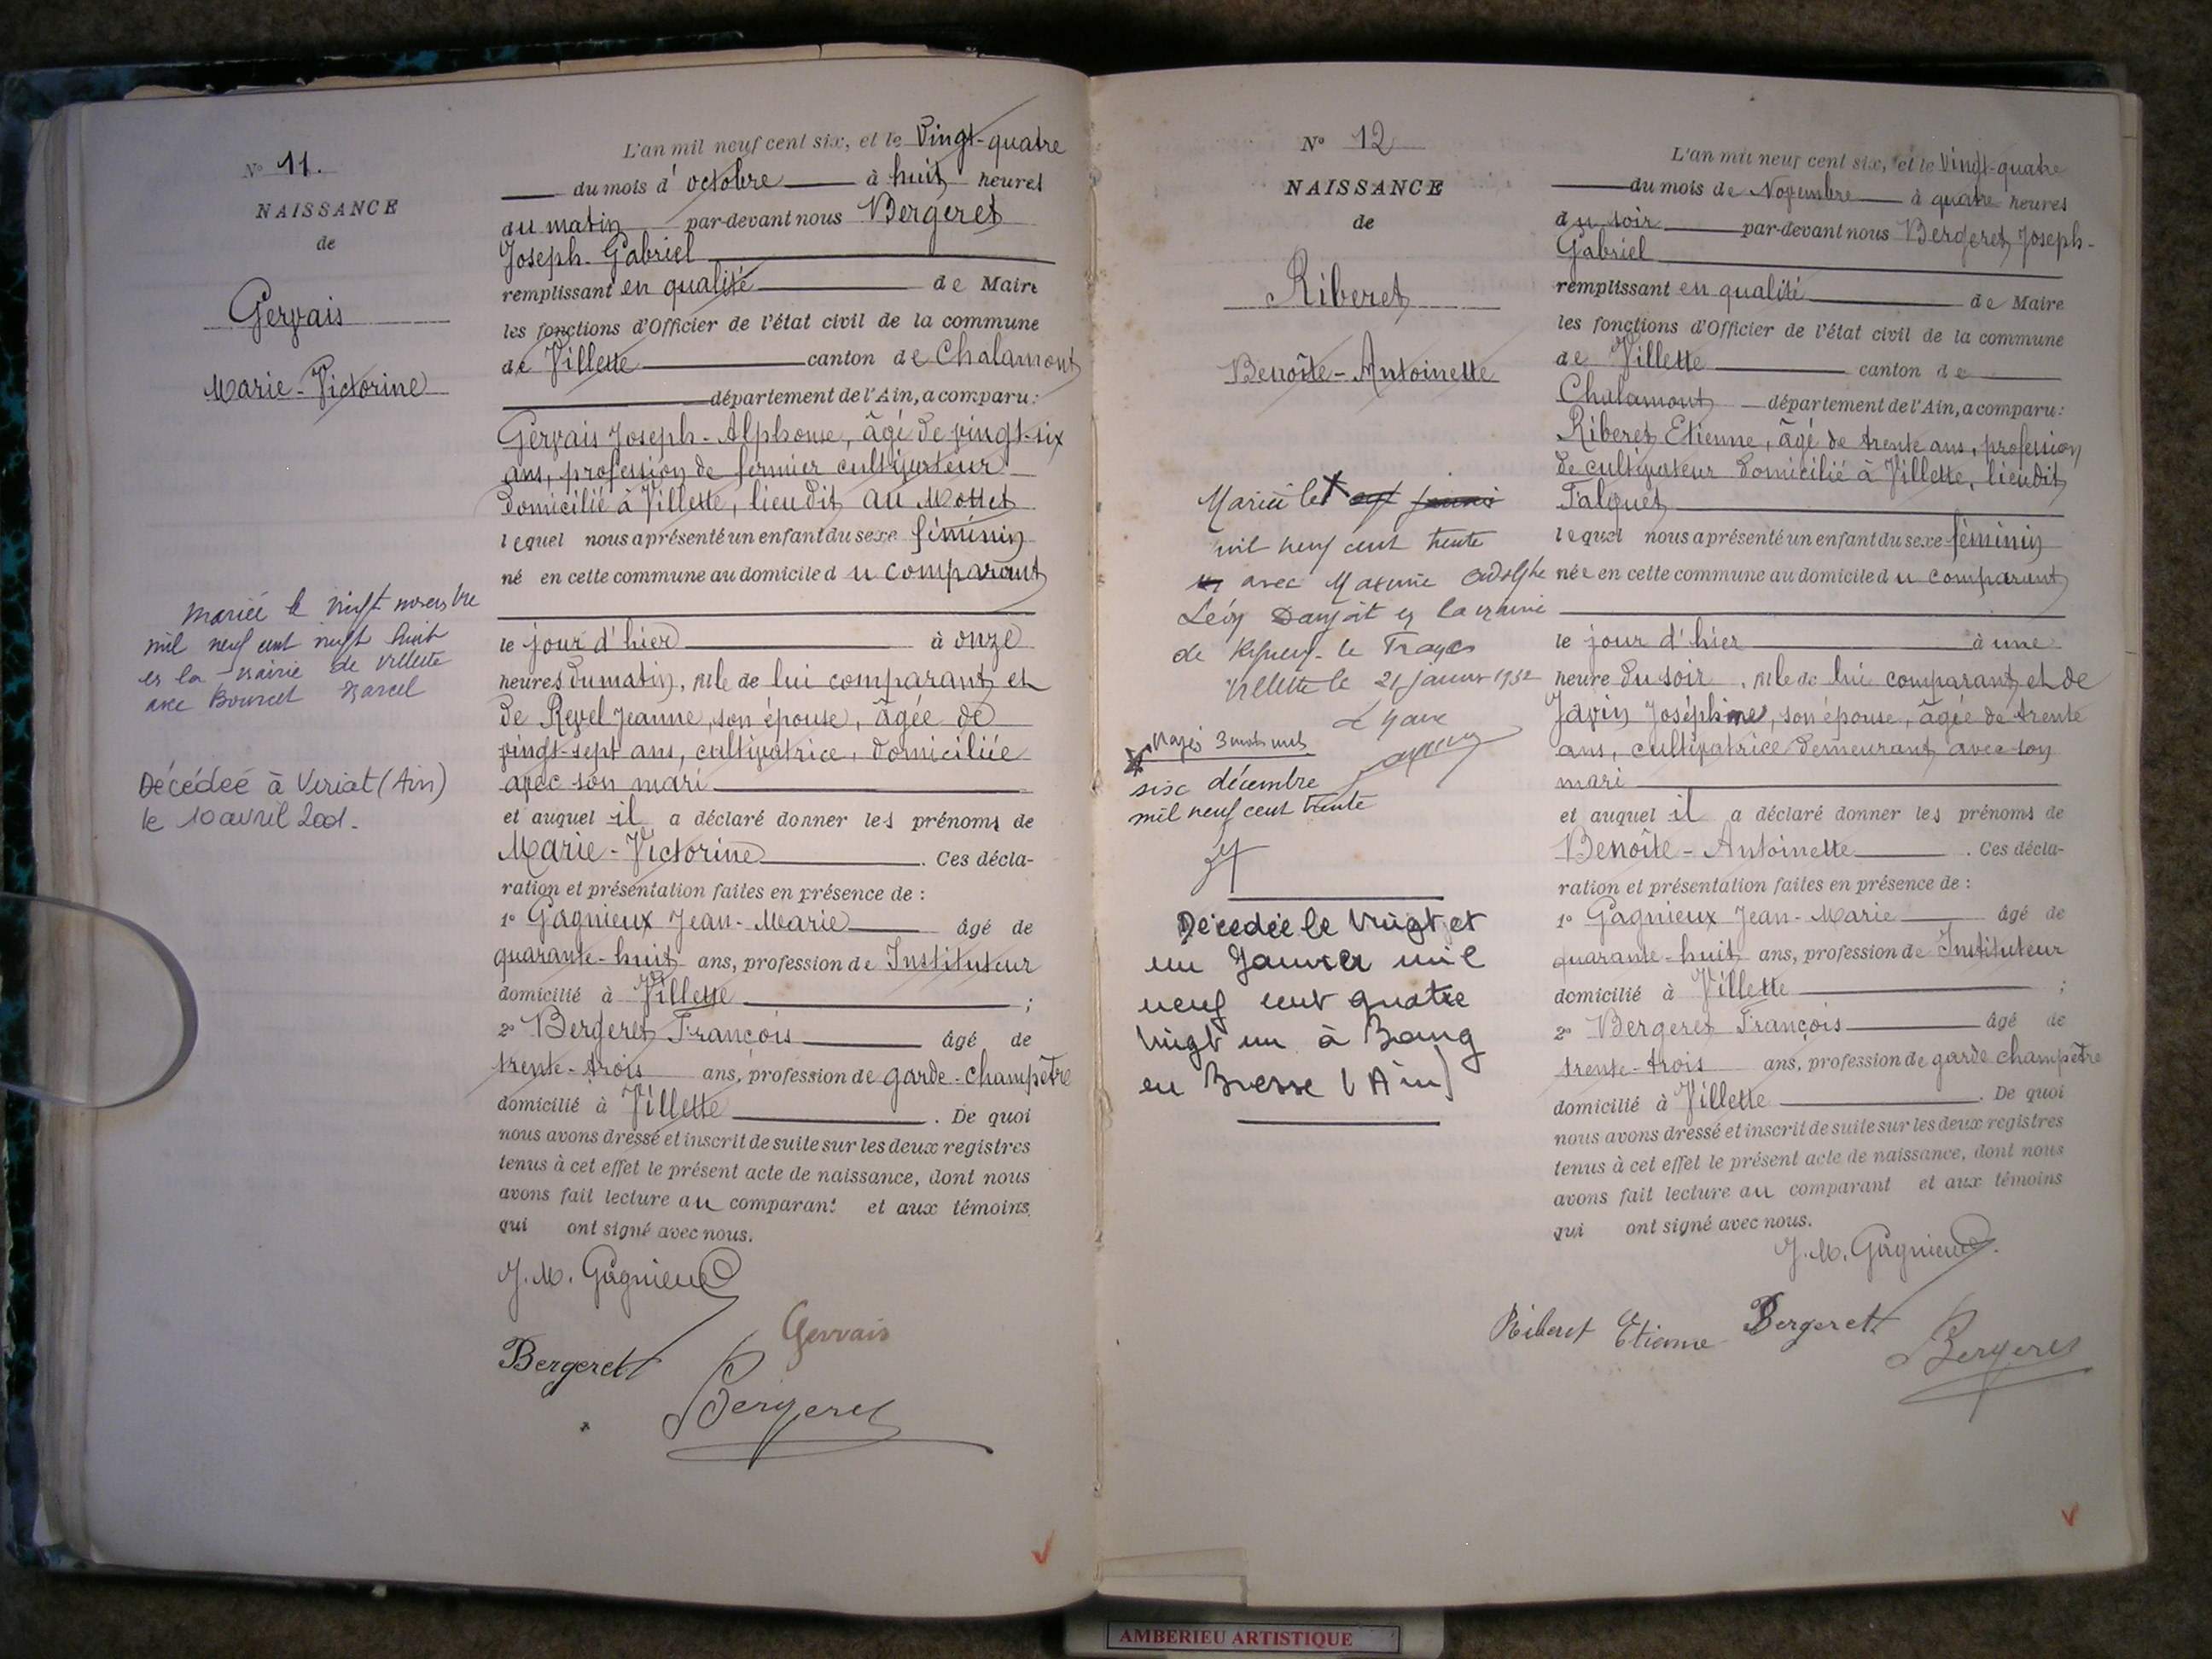 N° 11.
NAISSANCE
de
Gervais
Marie-Victorine
mariée le vingt novembre
mil neuf cent vingt huit
en la mairie de Villette
avec Bourcet Marcel
Décédée à Viriat (Ain)
le 10 avril 2001.
L'an mil neuf cent six, et le Vingt-quatre
du mois d'octobre à huit heures
du matin par-devant nous Bergeret
Joseph-Gabriel
remplissant en qualité de Maire
les fonctions d'Officier de l'état civil de la commune
de Villette canton de Chalamont
département de l'Ain, a comparu:
Gervais Joseph-Alphonse, âgé de vingt-six
ans, profession de fermier cultivateur
domicilié à Villette, lieu dit au Mottet
lequel nous a présenté un enfant du sexe féminin
né en cette commune au domicile du comparant
le jour d'hier à onze
heures du matin, fille de lui comparant et
de Revel Jeanne, son épouse, âgée de
vingt-sept ans, cultivatrice, domiciliée
avec son mari
et auquel il a déclaré donner les prénoms de
Marie-Victorine. Ces décla-
ration et présentation faites en présence de :
1° Gagnieux Jean-Marie âgé de
quarante-huit ans, profession de Instituteur
domicilié à Villette ;
2° Bergeret François âgé de
trente-trois ans, profession de garde-champêtre
domicilié à Villette. De quoi
nous avons dressé et inscrit de suite sur les deux registres
tenus à cet effet le présent acte de naissance, dont nous
avons fait lecture au comparant et aux témoins
qui ont signé avec nous.
J. M. Gagnieux
Gervais
Bergeret
Bergeret
N° 12
NAISSANCE
de
Riberet
Benoîte-Antoinette
Mariée le
mil neuf cent trente
avec Maxime Adolphe
Léon en la mairie
de
Villette le 21 janvier 1932
Le Maire
six décembre
mil neuf cent trente
Décédée le vingt et
un Janvier mil
neuf cent quatre
vingt un à Bourg
en Bresse (Ain)
L'an mil neuf cent six, et le Vingt-quatre
du mois de Novembre à quatre heures
du soir par-devant nous Bergeret Joseph-
Gabriel
remplissant en qualité de Maire
les fonctions d'Officier de l'état civil de la commune
de Villette canton de
Chalamont département de l'Ain, a comparu:
Riberet Etienne, âgé de trente ans, profession
de cultivateur domicilié à Villette, lieu dit
Falquet
lequel nous a présenté un enfant du sexe féminin
née en cette commune au domicile du comparant
le jour d'hier à une
heure du soir, fille de lui comparant et de
Javin Joséphine, son épouse, âgée de trente
ans, cultivatrice demeurant avec son
mari
et auquel il a déclaré donner les prénoms de
Benoîte-Antoinette. Ces décla-
ration et présentation faites en présence de :
1° Gagnieux Jean-Marie âgé de
quarante-huit ans, profession de Instituteur
domicilié à Villette ;
2° Bergeret François âgé de
trente-trois ans, profession de garde champêtre
domicilié à Villette. De quoi
nous avons dressé et inscrit de suite sur les deux registres
tenus à cet effet le présent acte de naissance, dont nous
avons fait lecture au comparant et aux témoins
qui ont signé avec nous.
J. M. Gagnieux.
Riberet Etienne Bergeret
Bergeret
AMBERIEU ARTISTIQUE